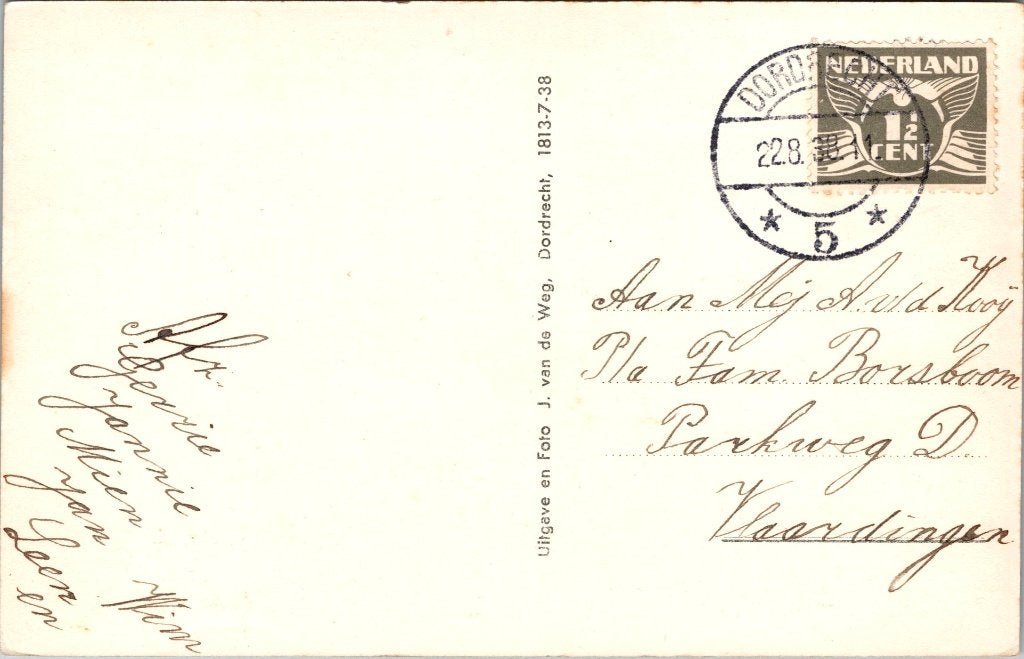 Afz.
Gerrie
Jannie
Mien
Jan
Leen
en Wim
Uitgave en Foto J. van de Weg, Dordrecht, 1813-7-38
NEDERLAND
1½
CENT
DORDRECHT
22.8.38.11.
5
Aan Mej A v/d Kooÿ
P/a Fam Borsboom
Parkweg D.
Vlaardingen